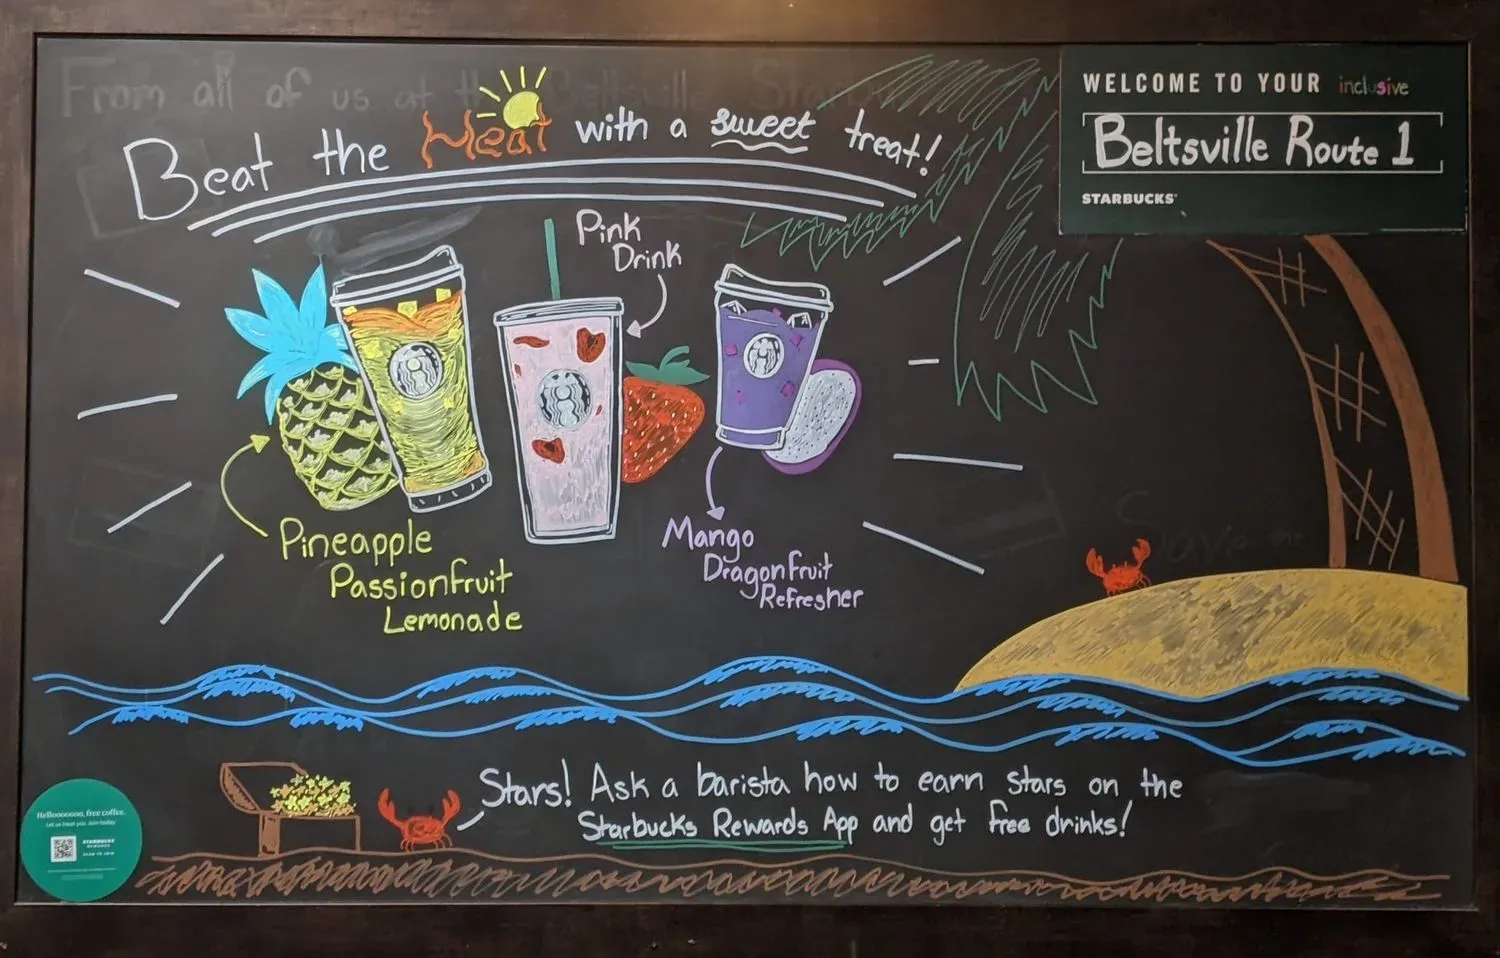 From all of us at the Beltsville
Beat the Heat with a sweet treat!
WELCOME TO YOUR inclusive
Beltsville Route 1
STARBUCKS
Pink
Drink
Pineapple
Passionfruit
Lemonade
Mango
Dragonfruit
Refresher
Stars! Ask a barista how to earn stars on the
Starbucks Rewards App and get free drinks!
Hellooooooo, free coffee.
Let us treat you. Join today
STARBUCKS
REWARDS
SCAN TO JOIN